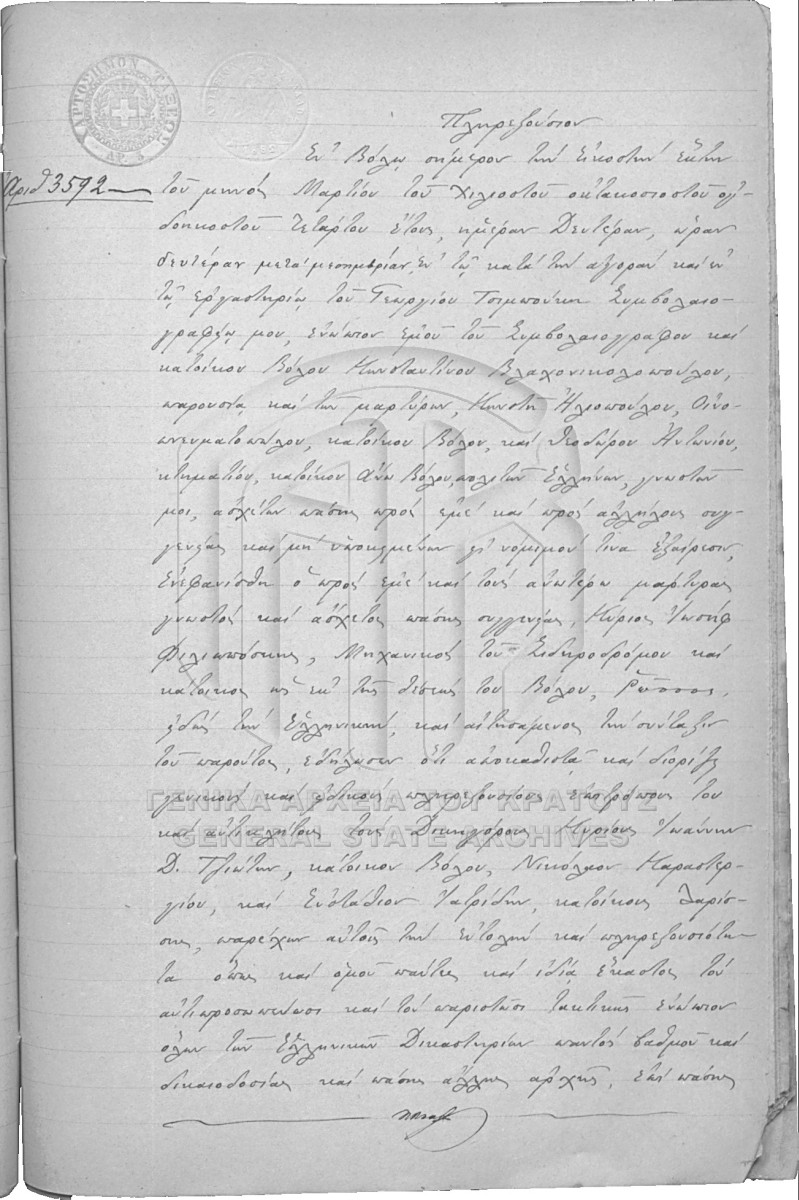 ΧΑΡΤΟΣΗΜΟΝ ΤΑΞΕΩΣ
Πληρεξούσιον
Ἐν Βόλῳ σήμερον τὴν εἰκοστὴν ἕκτην
Ἀριθ 3592
τοῦ μηνὸς Μαρτίου τοῦ χιλιοστοῦ ὀκτακοσιοστοῦ ὀγ-
δοηκοστοῦ τετάρτου ἔτους, ἡμέραν Δευτέραν, ὥραν
δευτέραν μετὰ μεσημβρίαν, ἐν τῷ κατὰ τὴν ἀγορὰν καὶ ἐν
τῷ ἐργαστηρίῳ τοῦ Γεωργίου Τσιμπούκη Συμβολαιο-
γραφείῳ μου, ἐνώπιον ἐμοῦ τοῦ Συμβολαιογράφου καὶ
κατοίκου Βόλου Κωνσταντίνου Βλαχονικολοπούλου,
παρουσίᾳ καὶ τῶν μαρτύρων, Κωστῆ Ἠλιοπούλου, Οἰνο-
πνευματοπώλου, κατοίκου Βόλου, καὶ Θεοδώρου Ἀντωνίου,
κτηματίου, κατοίκου Ἄνω Βόλου, πολιτῶν Ἑλλήνων, γνωστῶν
μοι, ἀσχέτων πάσης πρὸς ἐμὲ καὶ πρὸς ἀλλήλους συγ-
γενείας καὶ μὴ ὑποκειμένων εἰς νόμιμόν τινα ἐξαίρεσιν,
ἐνεφανίσθη ὁ πρὸς ἐμὲ καὶ τοὺς ἀνωτέρω μάρτυρας
γνωστὸς καὶ ἄσχετος πάσης συγγενείας, Κύριος Ἰωσὴφ
Μηχανικὸς τοῦ Σιδηροδρόμου καὶ
κάτοικος ὡς ἐκ τῆς θέσεώς του Βόλου, Ρῶσσος,
εἰδὼς τὴν Ἑλληνικήν, καὶ αἰτησάμενος τὴν σύνταξιν
τοῦ παρόντος, ἐδήλωσεν ὅτι ἀποκαθιστᾷ καὶ διορίζει
γενικοὺς καὶ εἰδικοὺς πληρεξουσίους ἐπιτρόπους του
καὶ ἀντικλήτους τοὺς Δικηγόρους Κυρίους Ἰωάννην
Δ. Τζιώτην, κάτοικον Βόλου, Νικόλαον Καραστερ-
γίου, καὶ Εὐστάθιον Ἰατρίδην, κατοίκους Λαρίσ-
σης, παρέχων αὐτοῖς τὴν ἐντολὴν καὶ πληρεξουσιότη-
τα ὅπως καὶ ὁμοῦ πάντες καὶ ἰδίᾳ ἕκαστος τὸν
ἀντιπροσωπεύωσι καὶ τὸν παριστῶσι τακτικῶς ἐνώπιον
ὅλων τῶν Ἑλληνικῶν Δικαστηρίων παντὸς βαθμοῦ καὶ
δικαιοδοσίας καὶ πάσης ἄλλης ἀρχῆς, ἐπὶ πάσης
ΓΕΝΙΚΑ ΑΡΧΕΙΑ ΤΟΥ ΚΡΑΤΟΥΣ
GENERAL STATE ARCHIVES